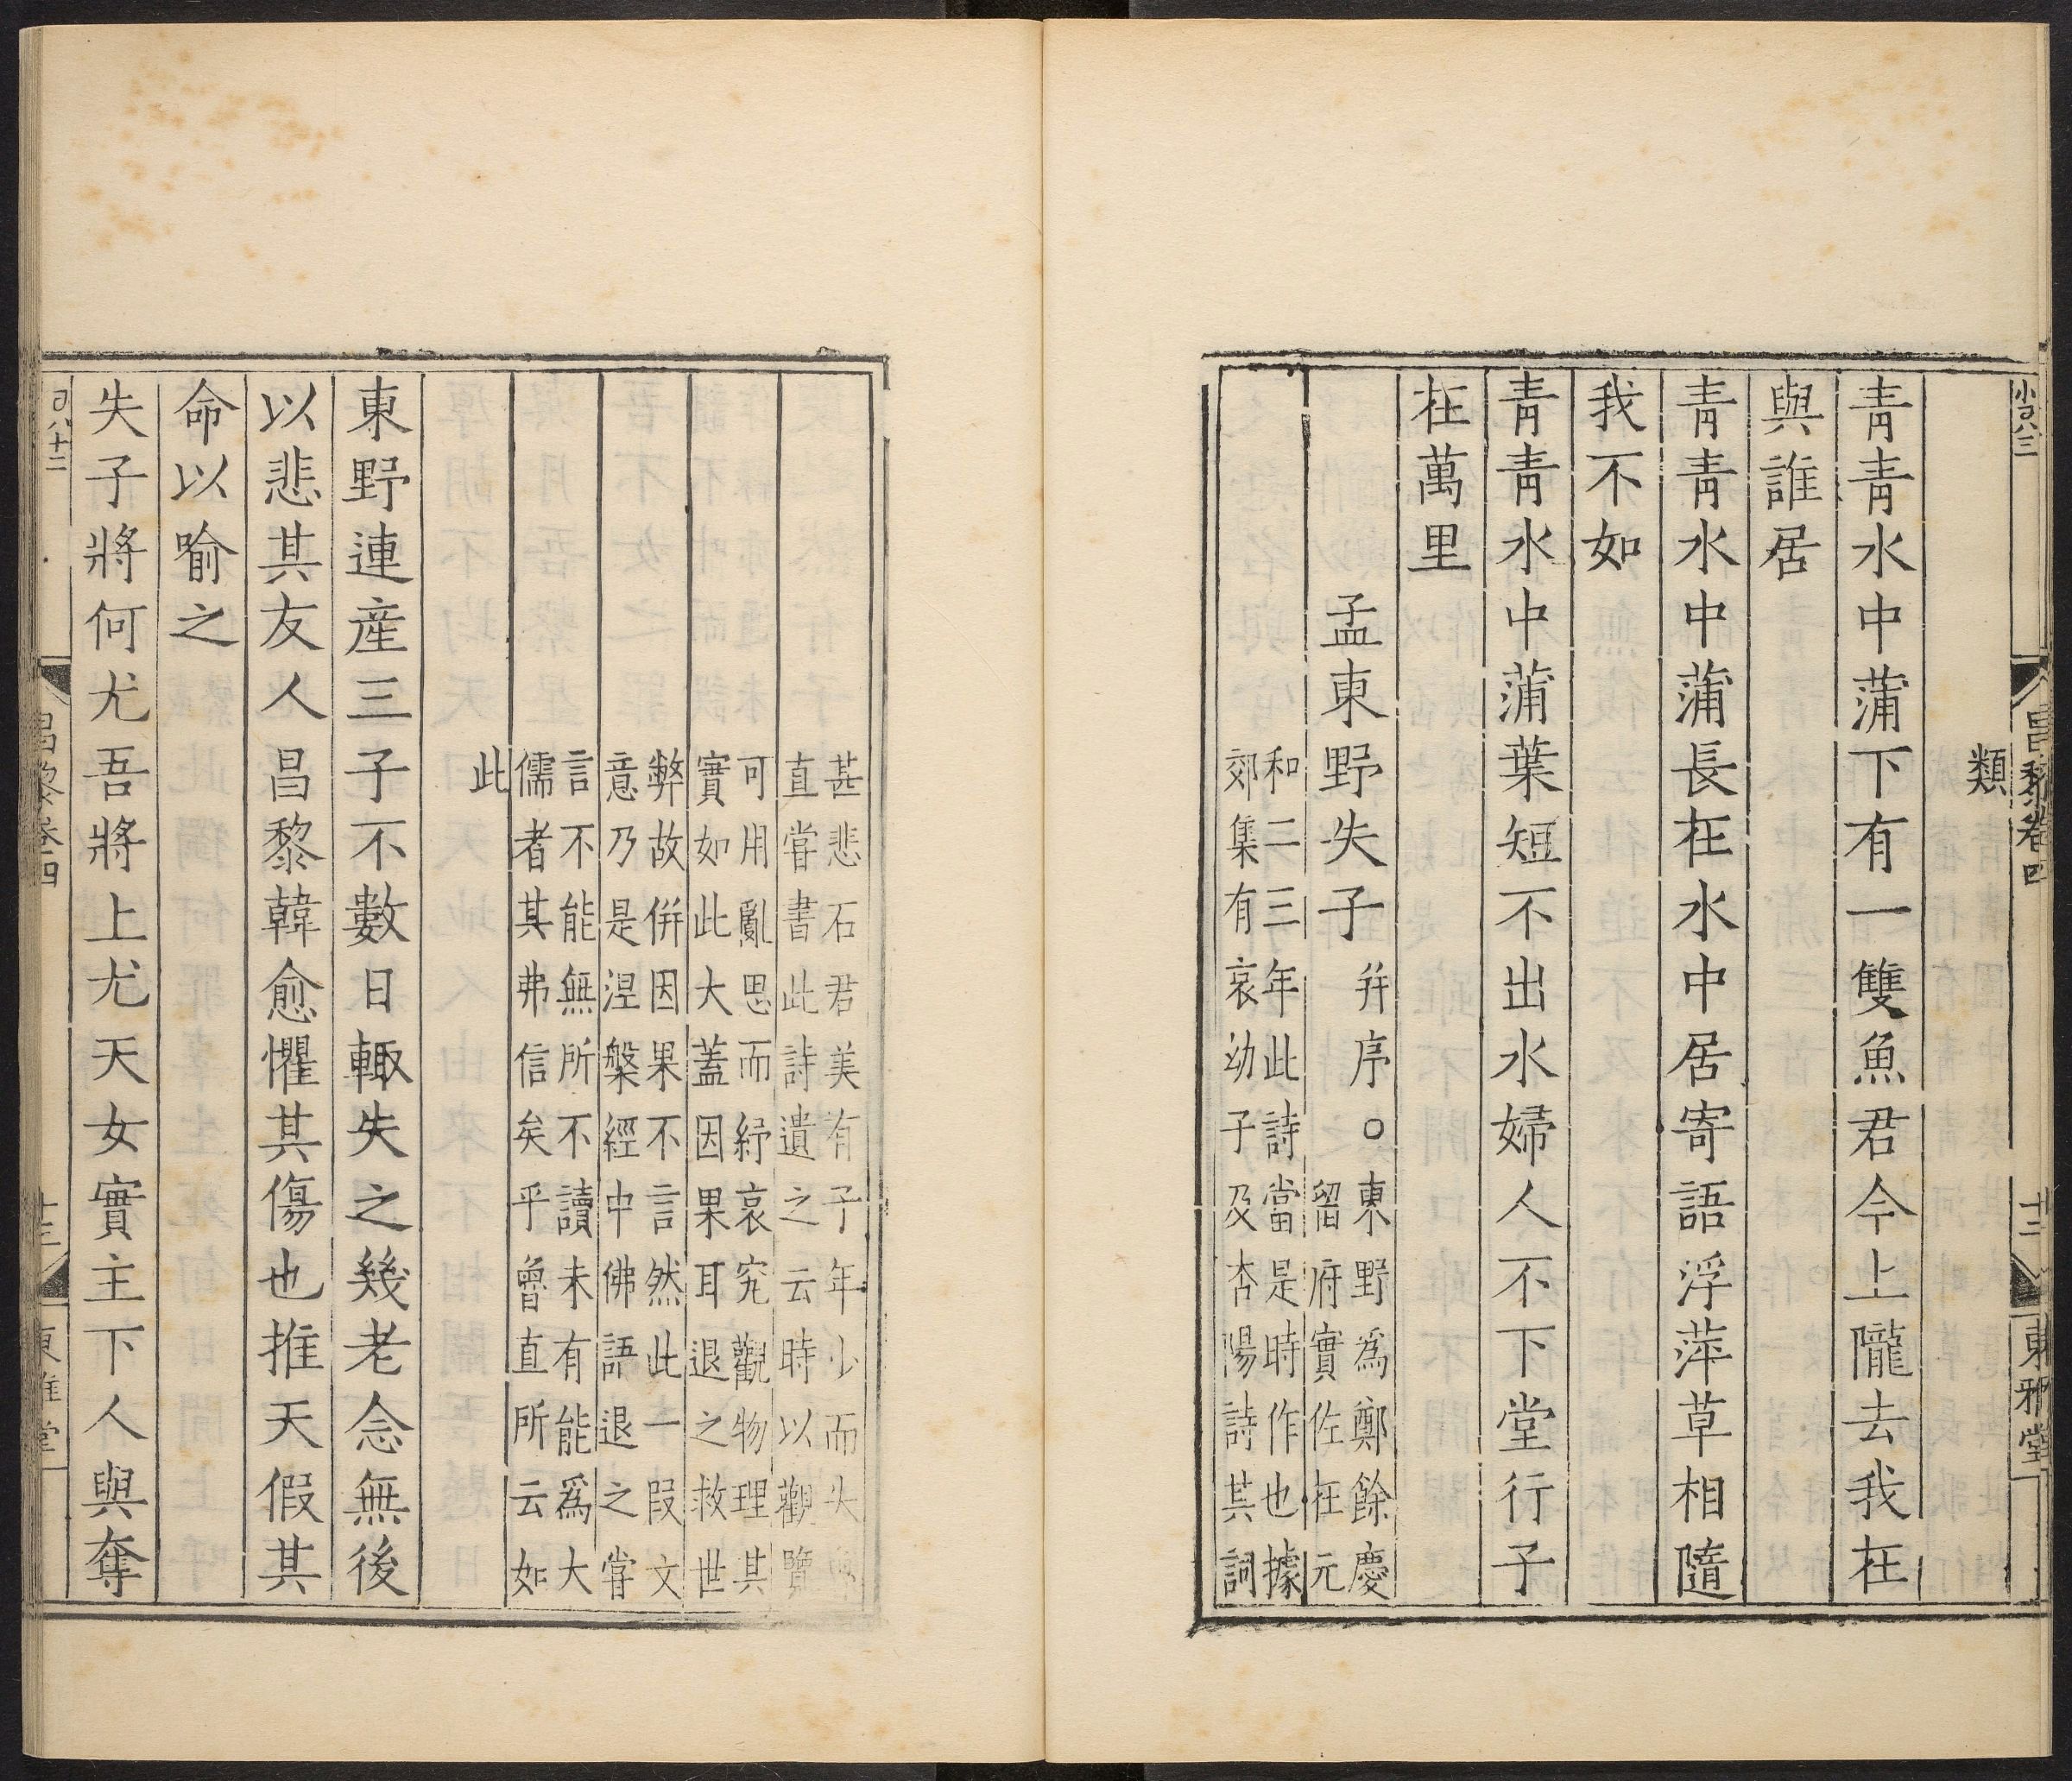 小百八三
昌黎卷四
十二
東雅堂
類
青青水中蒲下有一雙魚君今上隴去我在
與誰居
青青水中蒲長在水中居寄語浮萍草相隨
我不如
青青水中蒲葉短不出水婦人不下堂行子
在萬里
孟東野失子
并序○東野為鄭餘慶
留府實佐在元
和二三年此詩當是時作也據
郊集有哀幼子及杏陽詩其詞
甚悲石君美有子年少而失
直嘗書此詩遺之云時以觀覽
可用亂思而紓哀究觀物理其
實如此大蓋因果耳退之救世
弊故併因果不言然此一段文
意乃是涅槃經中佛語退之嘗
言不能無所不讀未有能爲大
儒者其弗信矣乎魯直所云如
此
東野連産三子不數日輙失之幾老念無後
以悲其友人昌黎韓愈懼其傷也推天假其
命以喻之
失子將何尤吾將上尤天女實主下人與奪
百八十二
昌黎卷四
十三
東雅堂